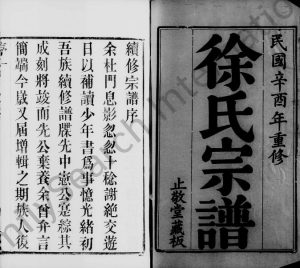 民國辛酉年重修
徐氏宗譜
止敬堂藏板
續修宗譜序
余杜門息影忽忽十稔謝絕交遊
日以補讀少年書爲事憶光緒初
吾族續修譜牒先中憲公寔綜其
成刻將竣而先公棄養余曾弁言
簡端今歲又届增輯之期族人復